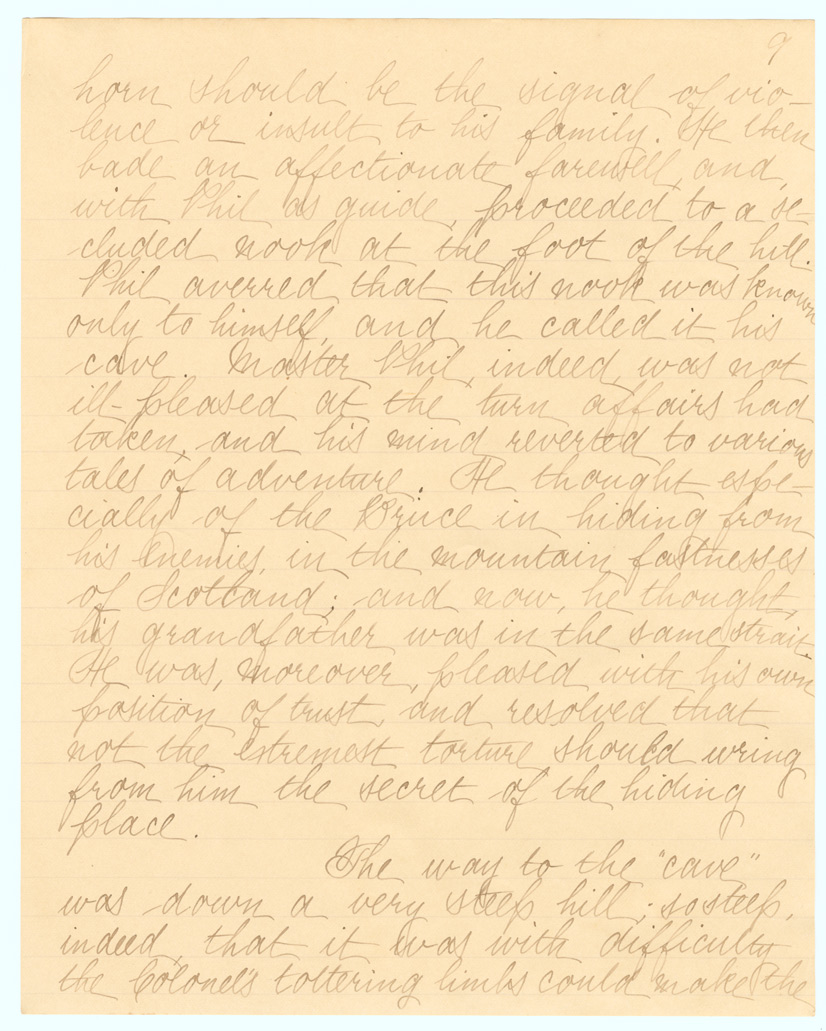 9
horn should be the signal of vio-
lence or insult to his family. He then
bade an affectionate farewell, and,
with Phil as guide, proceeded to a se-
cluded nook at the foot of the hill.
Phil averred that this nook was known
only to himself, and he called it his
cave. Master Phil, indeed, was not
ill-pleased at the turn affairs had
taken, and his mind reverted to various
tales of adventure. He thought espe-
cially of the Bruce in hiding from
his enemies, in the mountain fastnesses
of Scotland; and now, he thought,
his grandfather was in the same strait.
He was, moreover, pleased with his own
position of trust, and resolved that
not the extremest torture should wring
from him the secret of the hiding
place.
The way to the "cave"
was down a very steep hill; so steep,
indeed, that it was with difficulty
the Colonel's tottering limbs could make the